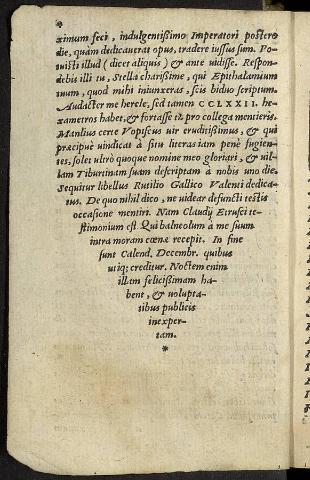 ximum feci, indulgentißimo Imperatori postero
die, quàm dedicauerat opus, tradere iussus sum. Po-
tuisti illud (dicet aliquis) & ante uidisse. Respon-
debis illi tu, Stella charißime, qui Epithalamium
tuum, quod mihi iniunxeras, scis biduo scriptum.
Audacter me hercle, sed tamen CCLXXII. he-
xametros habet, & fortasse tu pro collega mentieris.
Manlius certe Vopiscus uir eruditißimus, & qui
præcipuè uindicat à situ literas iam penè fugien-
tes, solet ultrò quoque nomine meo gloriari, & uil-
lam Tiburtinam suam descriptam à nobis uno die.
Sequitur libellus Rutilio Gallico Valenti dedica-
tus. De quo nihil dico, ne uidear defuncti testis
occasione mentiri. Nam Claudij Etrusci te-
stimonium est. Qui balneolum à me suum
intra moram cœnæ recepit. In fine
sunt Calend. Decembr. quibus
utiq; creditur. Noctem enim
illam felicißimam ha-
bent, & uolupta-
tibus publicis
inexper-
tam.
*